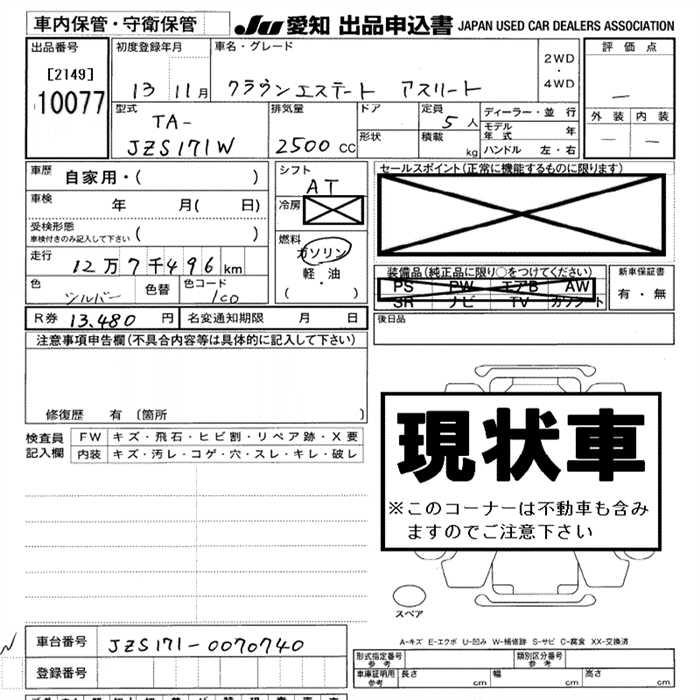 車内保管・守衛保管
JU 愛知 出品申込書 JAPAN USED CAR DEALERS ASSOCIATION
出品番号
[2149]
10077
初度登録年月
13 11月
車名・グレード
クラウンエステート アスリート
2WD
・
4WD
評価点
—
外装 内装
— —
型式
TA-
JZS171W
排気量
2500 cc
ドア
形状
定員
5人
積載
kg
ディーラー・並行
モデル年式 年
ハンドル 左・右
車歴 自家用・( )
車検 年 月( 日)
受検形態
車検付きのみ記入して下さい ( )
走行 12万7千496km
色 シルバー 色替 色コード 1C0
シフト
AT
冷房
燃料
ガソリン
軽・油
( ・ )
セールスポイント(正常に機能するものに限ります)
装備品(純正品に限り○をつけてください)
PS PW エアB AW
SR ナビ TV カワシート
新車保証書
有・無
R券 13.480円 名変通知期限 月 日
後日品
注意事項申告欄(不具合内容等は具体的に記入して下さい)
修復歴 有〔箇所 〕
検査員記入欄
FW キズ・飛石・ヒビ割・リペア跡・X要
内装 キズ・汚レ・コゲ・穴・スレ・キレ・破レ
現状車
※このコーナーは不動車も含み
ますのでご注意下さい
スペア
A-キズ E-エクボ U-凹み W-補修跡 S-サビ C-腐食 XX-交換済
車台番号 JZS171-0070740
登録番号
形式指定番号
参考
類別区分番号
参考
車庫証明用
参考
長さ cm 幅 cm 高さ cm